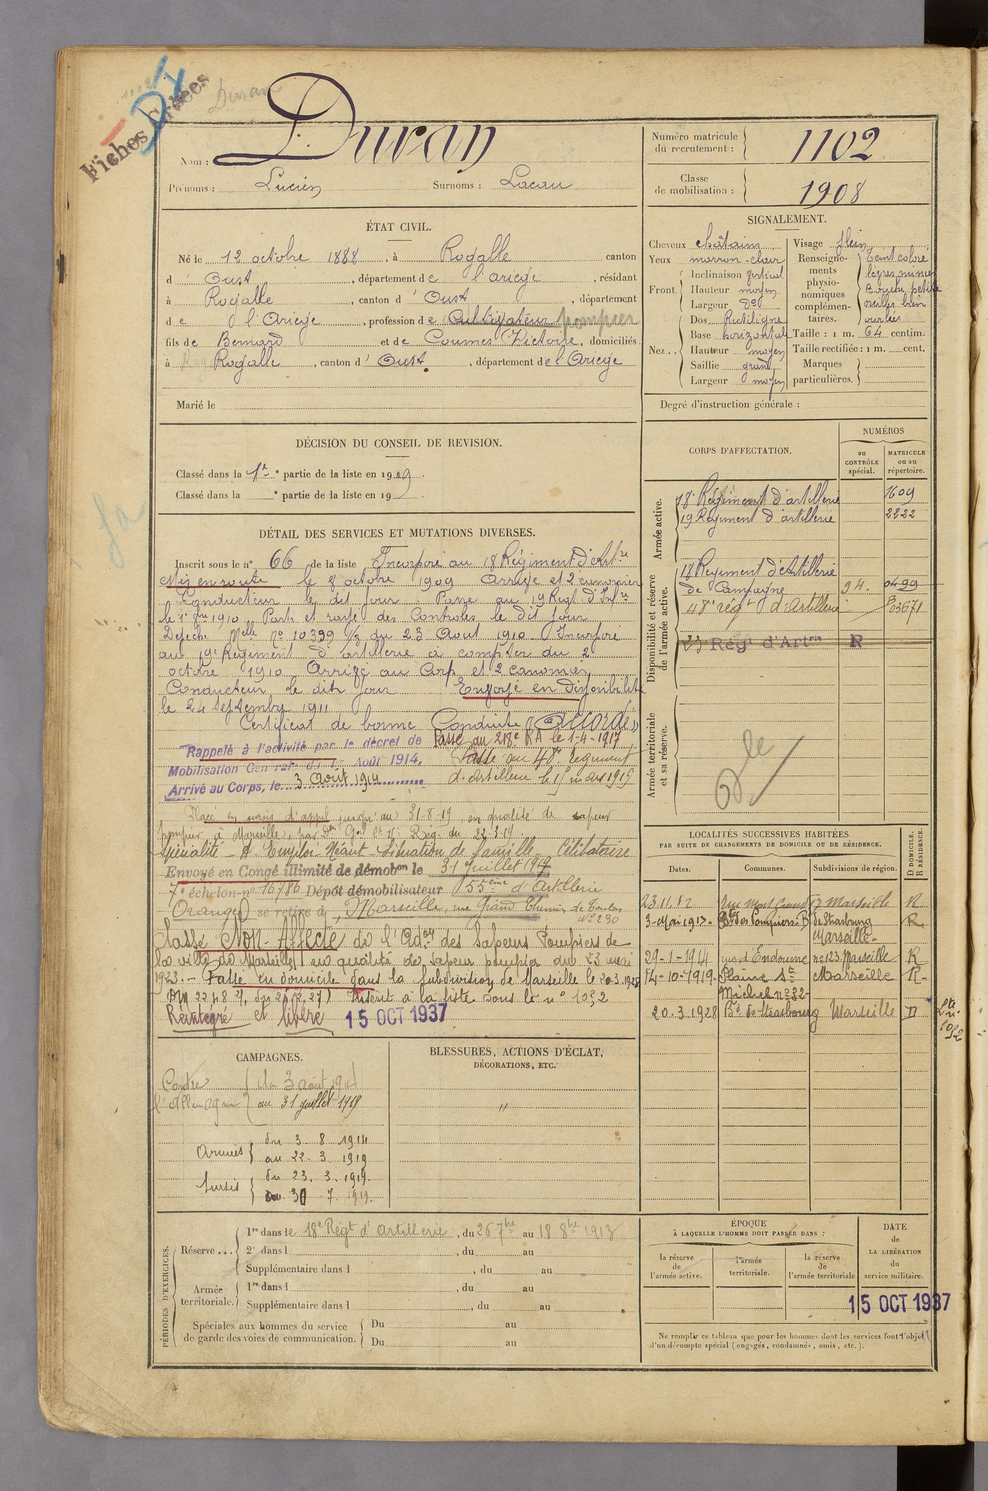 Fiches Créées
1102
Duran
Nom : Duran
Prénoms : Lucien Surnoms : Lacau
Numéro matricule du recrutement : 1102
Classe de mobilisation : 1908
ÉTAT CIVIL.
Né le 12 octobre 1888, à Rogalle canton
d' Oust, département de l'ariège, résidant
à Rogalle, canton d' Oust, département
de l'Ariège, profession de Cultivateur pompier
fils de Bernard et de Coumes Victoire, domiciliés
à Rogalle, canton d' Oust, département de l'Ariège
Marié le
SIGNALEMENT.
Cheveux châtains
Yeux marron-clair
Front Inclinaison vertical
Hauteur moyen
Largeur do
Nez Dos Rectiligne
Base horizontal
Hauteur moyen
Saillie grand
Largeur moyen
Visage plein
Renseignements physionomiques complémentaires. Teint coloré
lèvres minces
Bouche petite
oreilles bien
ourlées
Taille : 1 m. 64 centim.
Taille rectifiée : 1 m. cent.
Marques particulières.
Degré d'instruction générale :
DÉCISION DU CONSEIL DE REVISION.
Classé dans la 1re partie de la liste en 1909.
Classé dans la e partie de la liste en 19
CORPS D'AFFECTATION.
NUMÉROS
au CONTRÔLE spécial.
MATRICULE ou au répertoire.
Armée active.
18e Régiment d'artillerie 1609
19 Régiment d'artillerie 2222
Disponibilité et réserve de l'armée active.
18 Régiment d'Artillerie
de Campagne 24. 0499
48e rég t d'Artillerie 03671
23 Rég t d'Art rie R
Armée territoriale et sa réserve.
DÉTAIL DES SERVICES ET MUTATIONS DIVERSES.
Inscrit sous le n° 66 de la liste Incorporé au 18 Régiment d'Art ie
Mis en route le 8 octobre 1909 Arrivé et 2 canonnier
Conducteur le dit jour Passé au 19 Rég t d'
le 1er 8bre 1910 Parti et rayé des Contrôles le dit jour
Dépêche Mlle no 10.399 1/3 du 23 Aout 1910 Incorporé
au 19e Régiment d'artillerie à compter du 2
octobre 1910 Arrivé au Corps et 2 canonnier
Conducteur le dit jour Envoyé en Disponibilité
le 24 Septembre 1911
Certificat de bonne Conduite "Accordé"
Rappelé à l'activité par le décret de
Mobilisation Générale du 1er Août 1914.
Arrivé au Corps, le 3 Août 1914
Passé au 218e RA le 1-4-1917
Passé au 48e Regiment
d'Artillerie le 15 mars 1919
Placé en sursis d'appel jusqu'au 31-8-19 en qualité de sapeur
pompier à Marseille, par du 22-3-19
Spécialité - A Emploi - Néant - Situation de famille Célibataire
Envoyé en Congé illimité de démobon le 31 Juillet 1919
7e échelon n° 16786 Dépôt démobilisateur 55ème d'Artillerie
(Orange) se retire à Marseille, rue Grand Chemin de Toulon
No 230
Classé Non Affecté de l'Adon des Sapeurs Pompiers de
la ville de Marseille, en qualité de sapeur pompier du 23 mai
1923. - Passé en domicile dans la Subdivision de Marseille le 20.3.1928
Inscrit à la liste sous le n° 1052
Réintégré et libéré 15 OCT 1937
LOCALITÉS SUCCESSIVES HABITÉES
PAR SUITE DE CHANGEMENTS DE DOMICILE OU DE RÉSIDENCE.
Dates. Communes. Subdivisions de région. D DOMICILE. R RÉSIDENCE.
23.11.12 rue Mont Grand 17 Marseille R
3-Mai 1913- Bd de Strasbourg R
Marseille-
29-1-1914 rue d'Endoume no 123 Marseille R
14-10-1919- Plaine St Marseille R-
Michel n° 32-
20.3.1928 Bd de Strasbourg Marseille D
CAMPAGNES.
Contre l'Allemagne du 3 août 1914
au 31 juillet 1919
Armées du 3. 8. 1914
au 22. 3. 1919
Sursis du 23. 3. 1919.
au 30 7. 1919.
BLESSURES, ACTIONS D'ÉCLAT,
DÉCORATIONS, ETC.
"
PÉRIODES D'EXERCICES.
Réserve 1re dans le 18e Rég t d'Artillerie, du 26 7bre au 18 8bre 1913
2e dans l , du au
Supplémentaire dans l , du au
Armée territoriale. 1re dans l , du au
Supplémentaire dans l , du au
Spéciales aux hommes du service de garde des voies de communication. Du au
Du au
ÉPOQUE
À LAQUELLE L'HOMME DOIT PASSER DANS :
la réserve de l'armée active.
l'armée territoriale.
la réserve de l'armée territoriale
DATE de LA LIBÉRATION du service militaire.
15 OCT 1937
Ne remplir ce tableau que pour les hommes dont les services font l'objet
d'un décompte spécial (engagés, condamnés, omis, etc.).